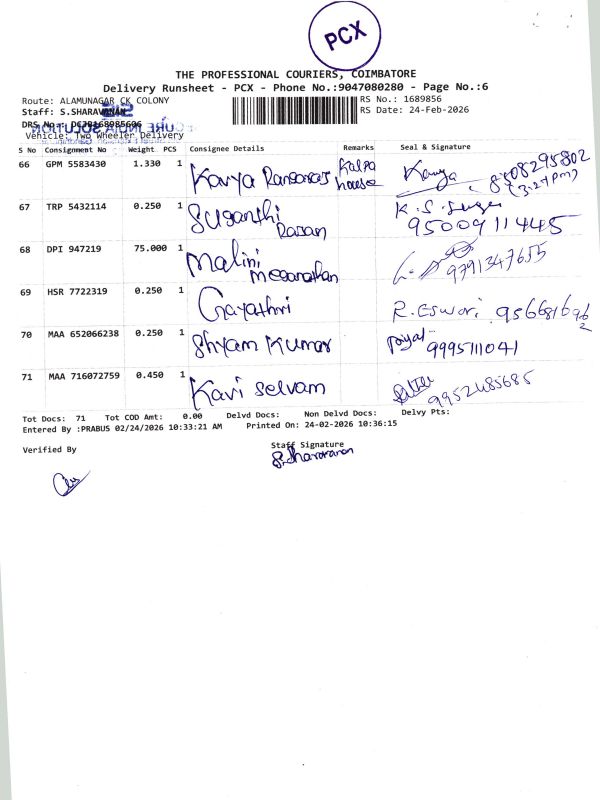 PCX
THE PROFESSIONAL COURIERS, COIMBATORE
Delivery Runsheet - PCX - Phone No.:9047080280 - Page No.:6
Route: ALAMUNAGAR CK COLONY
RS No.: 1689856
Staff: S.SHARAVANAN
RS Date: 24-Feb-2026
DRS No.:
Vehicle: Two Wheeler Delivery
S No Consignment No Weight PCS Consignee Details Remarks Seal & Signature
66 GPM 5583430 1.330 1 Kavya Kalpa house Kavya (3:27 pm)
67 TRP 5432114 0.250 1 Suganthi Rajan K.S. 9500911445
68 DPI 947219 75.000 1 Malini 9791347655
69 HSR 7722319 0.250 1 Gayathri R. Eswari 9566816962
70 MAA 652066238 0.250 1 Shyam Kumar 9995111041
71 MAA 716072759 0.450 1 Kavi Selvam 9952485685
Tot Docs: 71 Tot COD Amt: 0.00 Delvd Docs: Non Delvd Docs: Delvy Pts:
Entered By :PRABUS 02/24/2026 10:33:21 AM Printed On: 24-02-2026 10:36:15
Verified By
Staff Signature
S.Sharavanan